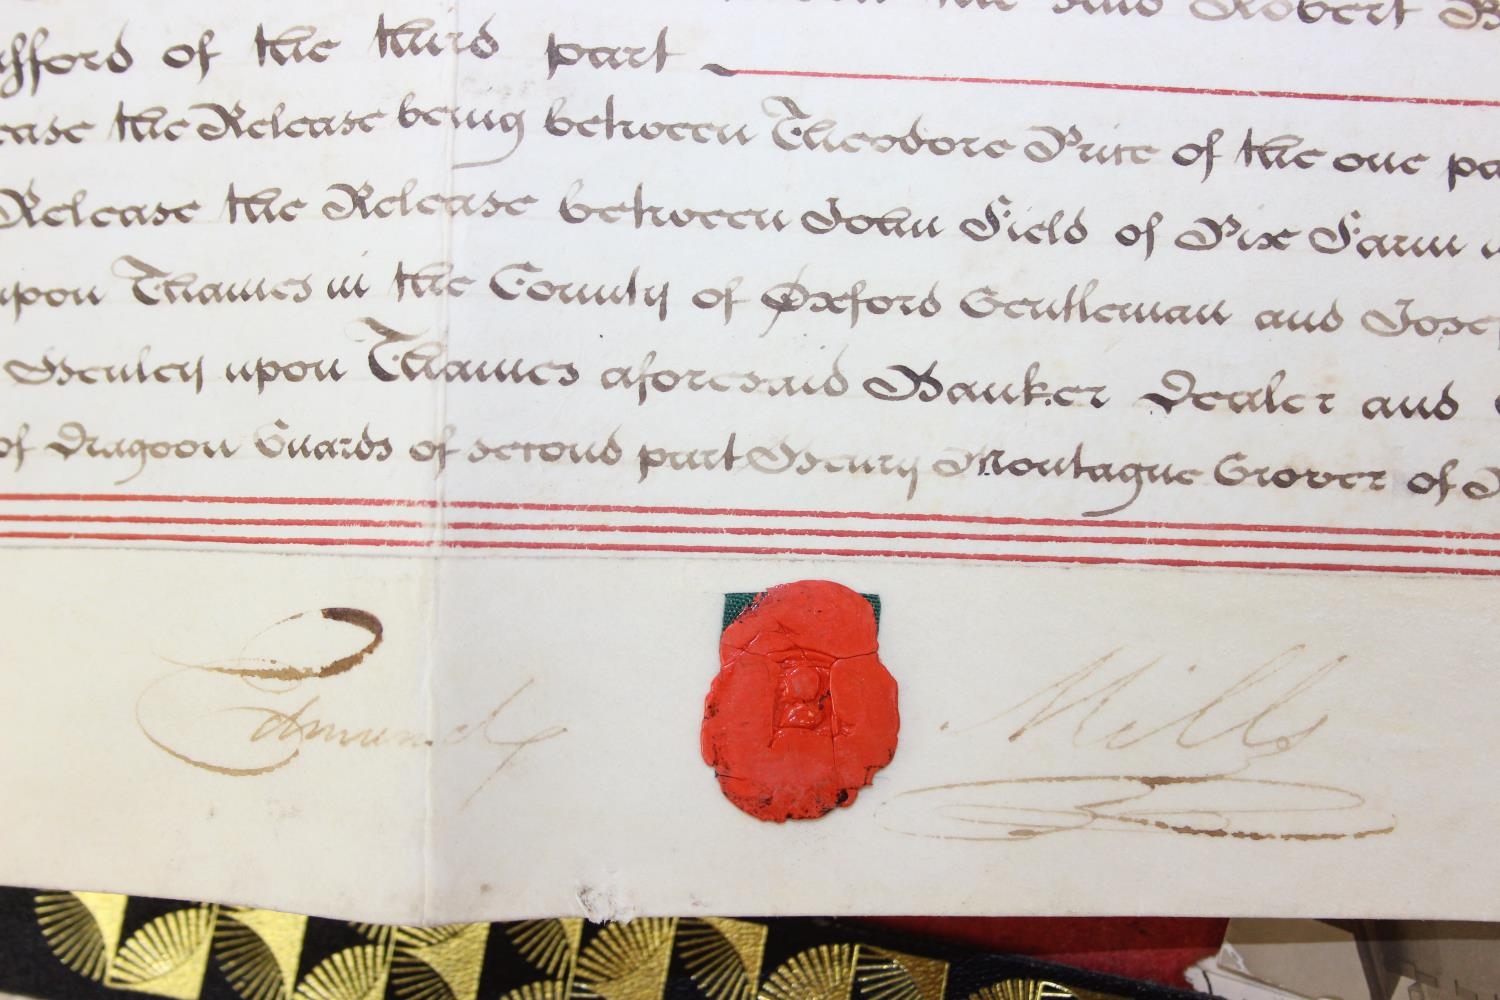 the said Robert
of the third part
the Release being between Theodore Price of the one
Release the Release between John Field of Pix Farm
upon Thames in the County of Oxford Gentleman and
Henley upon Thames aforesaid Banker Dealer and
of Dragoon Guards of second part Henry Montague Grover of
Edmund Mills